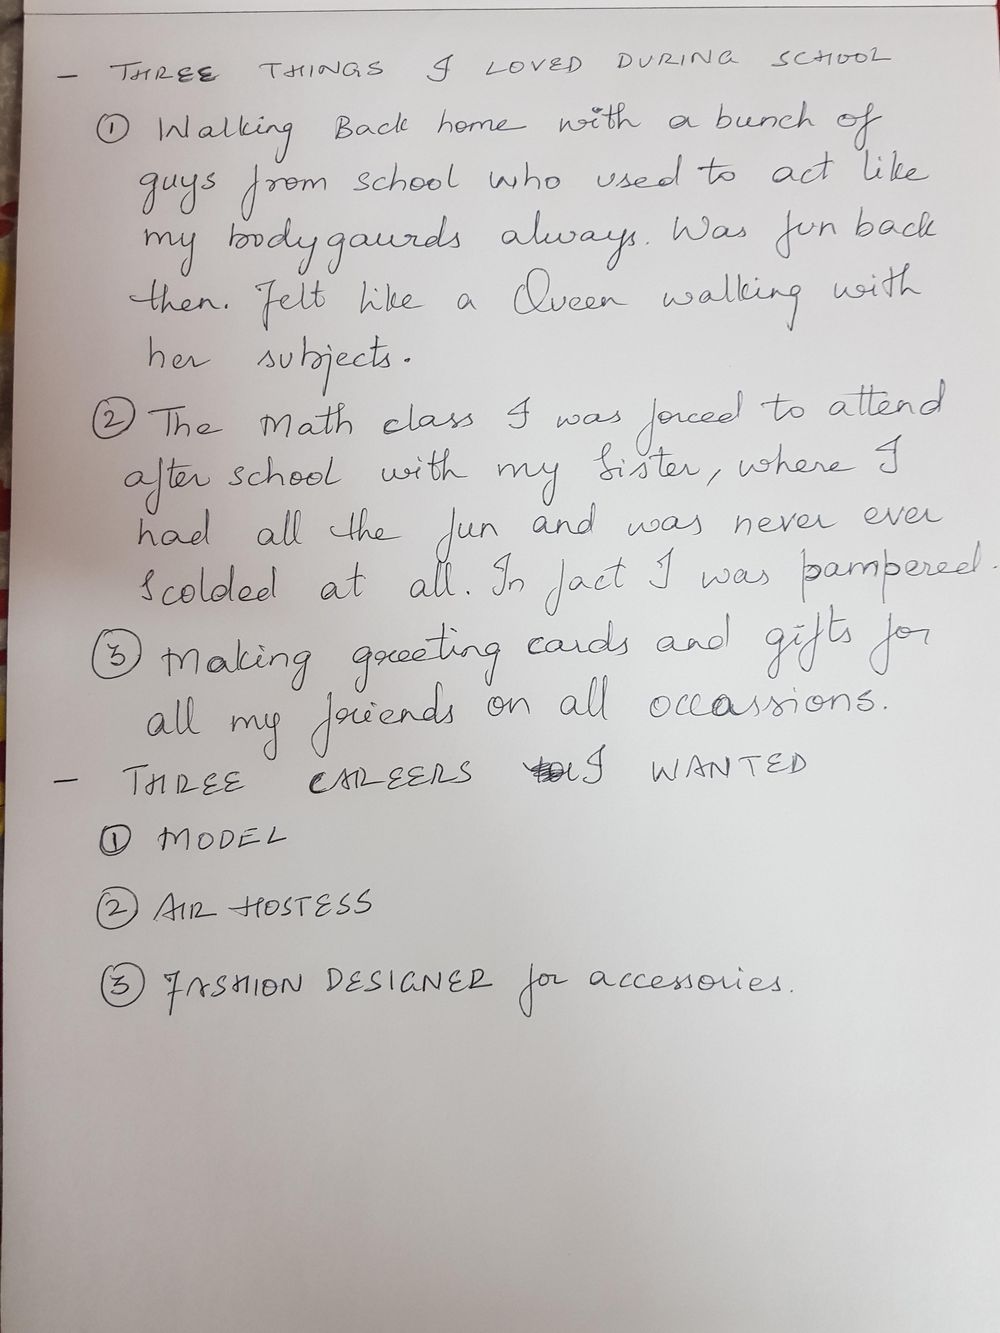 - THREE THINGS I LOVED DURING SCHOOL
① Walking Back home with a bunch of
guys from school who used to act like
my bodygaurds always. Was fun back
then. Felt like a Queen walking with
her subjects.
② The Math class I was forced to attend
after school with my Sister, where I
had all the fun and was never ever
Scolded at all. In fact I was pampered.
③ Making greeting cards and gifts for
all my friends on all occassions.
- THREE CAREERS I WANTED
① MODEL
② AIR HOSTESS
③ FASHION DESIGNER for accessories.